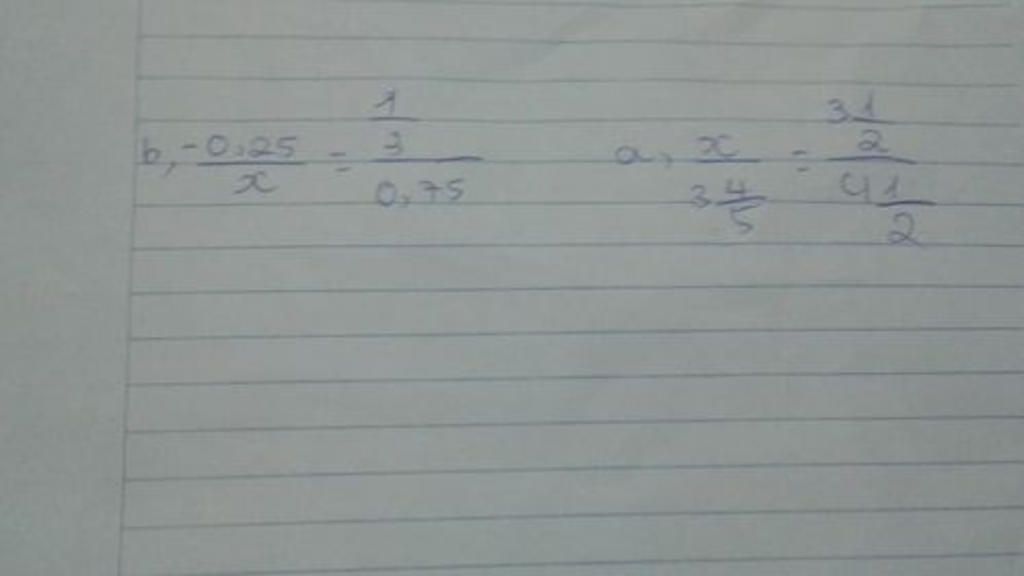 b, -0,25/x = 1/3/0,75
a, x/3 4/5 = 3 1/2/4 1/2